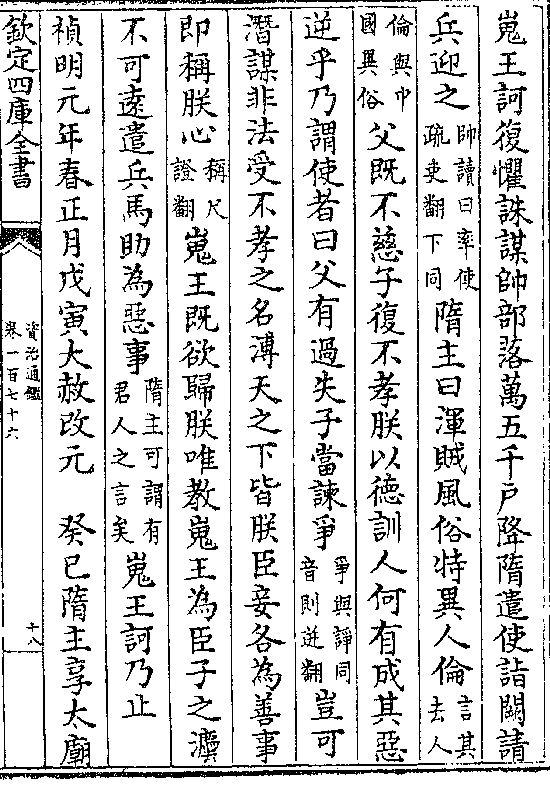 嵬王訶復懼誅謀帥部落萬五千戶降隋遣使詣闕請
兵迎之帥讀曰率使疏吏翻下同隋主曰渾賊風俗特異人倫言其去人
倫與中國異俗父既不慈子復不孝朕以德訓人何有成其惡
逆乎乃謂使者曰父有過失子當諫爭爭與諍同音則迸翻豈可
潛謀非法受不孝之名溥天之下皆朕臣妾各為善事
即稱朕心稱尺證翻嵬王既欲歸朕唯教嵬王為臣子之灋
不可遠遣兵馬助為惡事隋主可謂有君人之言矣嵬王訶乃止
禎明元年春正月戊寅大赦改元 癸巳隋主享太廟
欽定四庫全書
資治通鑑
卷一百七十六
十八